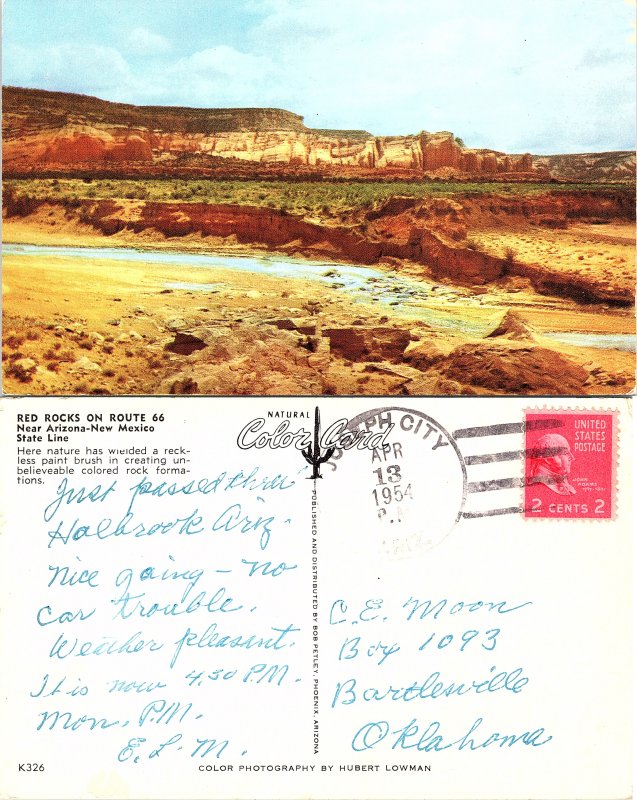 RED ROCKS ON ROUTE 66
Near Arizona-New Mexico
State Line
Here nature has wielded a reck-
less paint brush in creating un-
believeable colored rock forma-
tions.
NATURAL
Color Card
JOSEPH CITY
APR
13
1954
ARIZ.
UNITED
STATES
POSTAGE
JOHN
ADAMS
2 CENTS 2
Just passed thru
Holbrook Ariz.
Nice going – no
car trouble.
Weather pleasant.
It is now 4:50 P.M.
Mon. P.M.
E. L. M.
PUBLISHED AND DISTRIBUTED BY BOB PETLEY, PHOENIX, ARIZONA
C. E. Moon
Box 1093
Bartlesville
Oklahoma
K326
COLOR PHOTOGRAPHY BY HUBERT LOWMAN